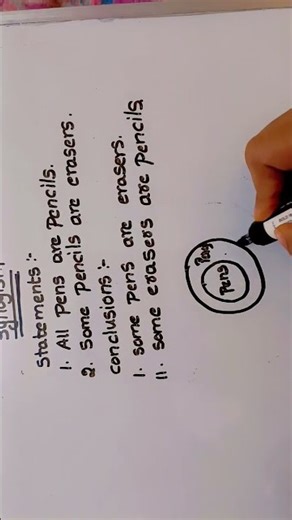 Syllogism
Statements :-
1. All Pens are Pencils.
2. Some Pencils are erasers.
conclusions :-
1. some Pens are erasers.
11. some erasers are Pencils
Pens